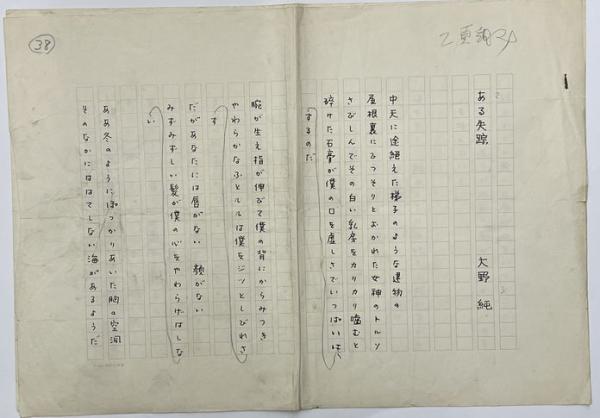 ある失踪
大野 純
中天に途絶えた梯子のような建物の
屋根裏にひっそりとおかれた女神のトルソ
さびしんでその白い乳房をカリカリ噛むと
砕けた石膏が僕の口を虚しさでいっぱいに
するのだ
腕が生え指が伸びて僕の背にからみつき
やわらかなふとももは僕をジッとしびれさ
す
だがあなたには唇がない 顔がない
みずみずしい髪が僕の心をやわらげはしな
い
ああ冬のようにぽっかりあいた胸の空洞
そのなかにははてしない海があるようだ
38